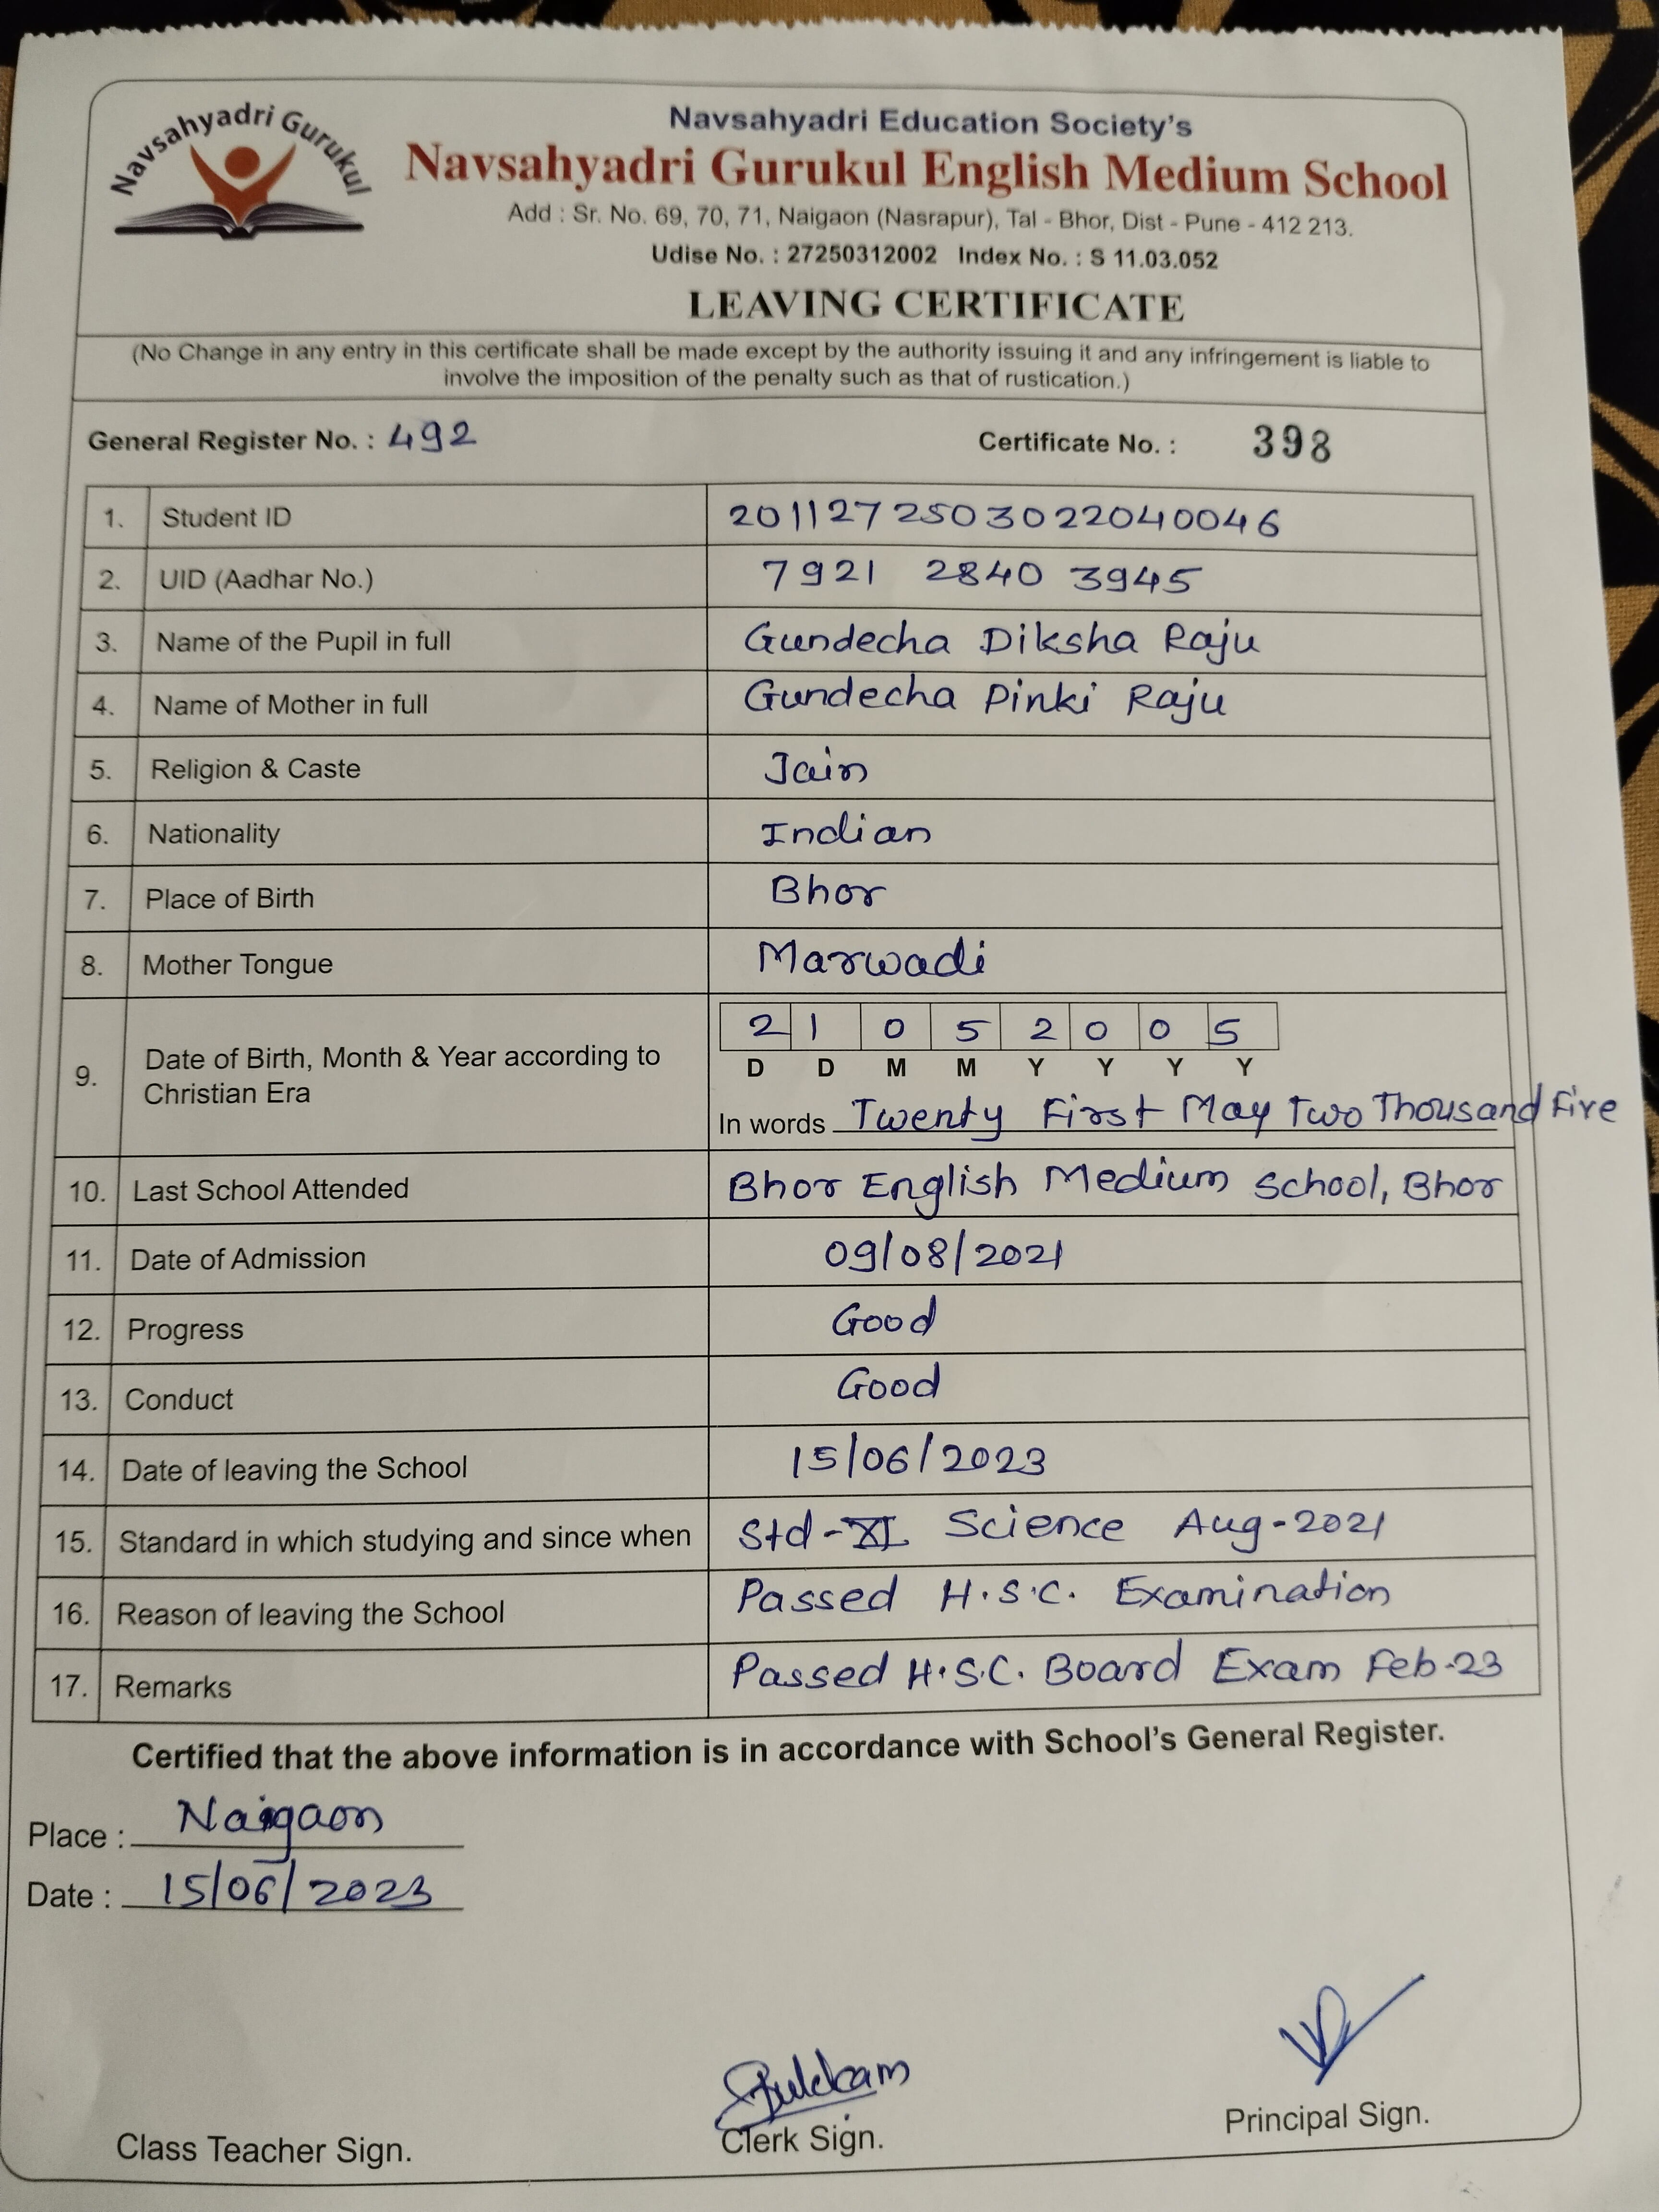 Navsahyadri Gurukul
Navsahyadri Education Society's
Navsahyadri Gurukul English Medium School
Add : Sr. No. 69, 70, 71, Naigaon (Nasrapur), Tal - Bhor, Dist - Pune - 412 213.
Udise No. : 27250312002 Index No. : S 11.03.052
LEAVING CERTIFICATE
(No Change in any entry in this certificate shall be made except by the authority issuing it and any infringement is liable to
involve the imposition of the penalty such as that of rustication.)
General Register No. : 492 Certificate No. : 398
1. Student ID 2011272503022040046
2. UID (Aadhar No.) 7921 2840 3945
3. Name of the Pupil in full Gundecha Diksha Raju
4. Name of Mother in full Gundecha Pinki Raju
5. Religion & Caste Jain
6. Nationality Indian
7. Place of Birth Bhor
8. Mother Tongue Marwadi
2 1 0 5 2 0 0 5
9. Date of Birth, Month & Year according to D D M M Y Y Y Y
Christian Era
In words Twenty First May Two Thousand Five
10. Last School Attended Bhor English Medium School, Bhor
11. Date of Admission 09/08/2021
12. Progress Good
13. Conduct Good
14. Date of leaving the School 15/06/2023
15. Standard in which studying and since when Std-XI Science Aug-2021
16. Reason of leaving the School Passed H.S.C. Examination
17. Remarks Passed H.S.C. Board Exam Feb-23
Certified that the above information is in accordance with School's General Register.
Place : Naigaon
Date : 15/06/2023
Class Teacher Sign. Clerk Sign. Principal Sign.